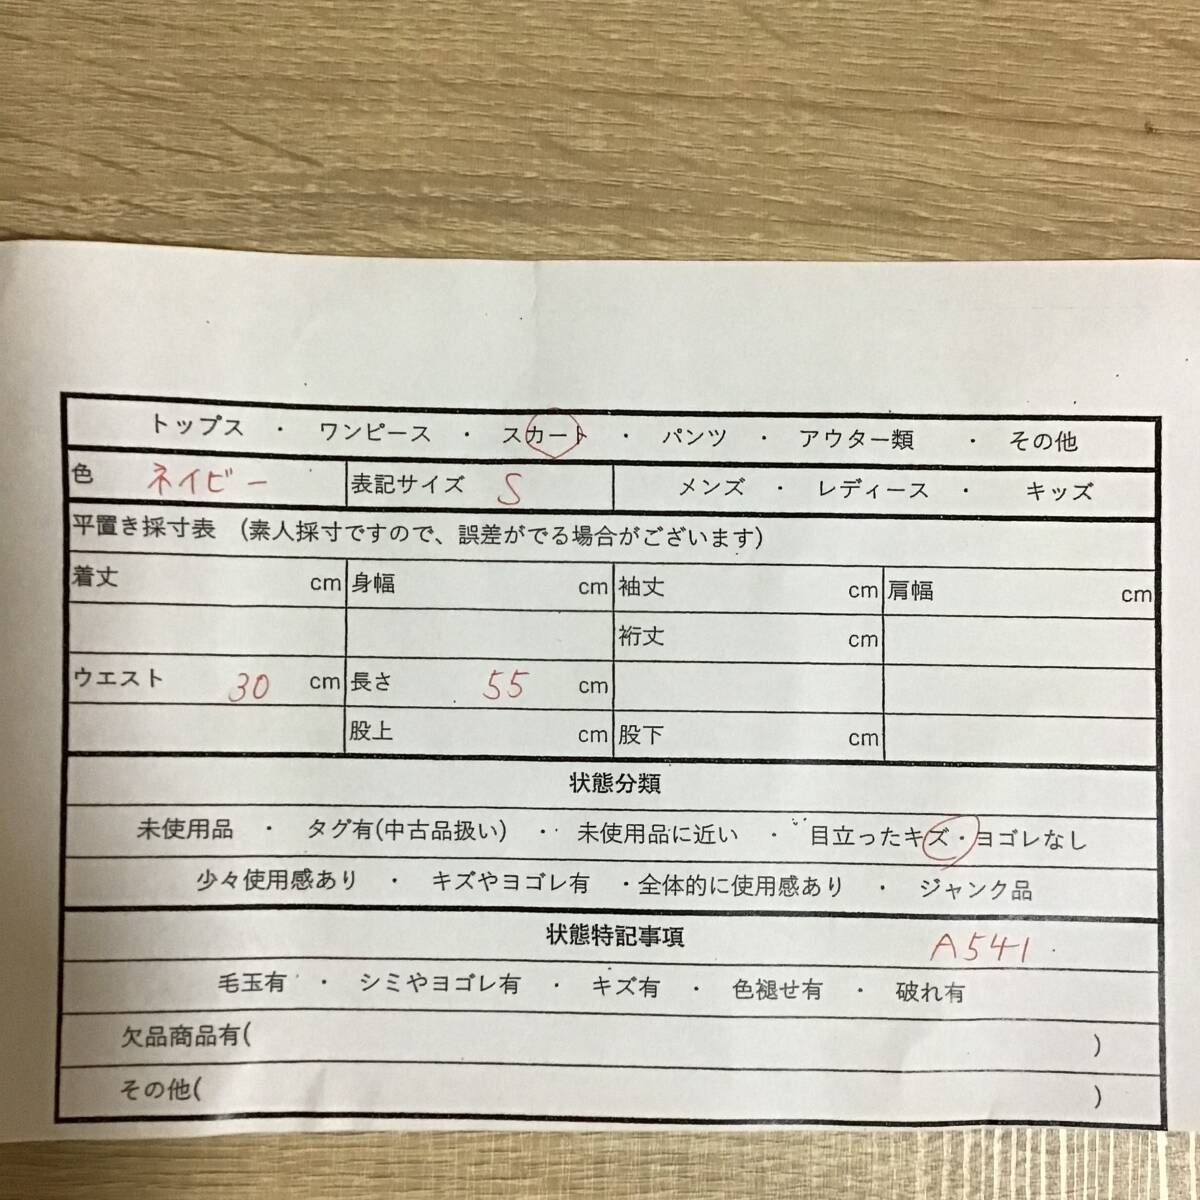 トップス ・ ワンピース ・ スカート ・ パンツ ・ アウター類 ・ その他
色 ネイビー 表記サイズ S メンズ ・ レディース ・ キッズ
平置き採寸表 (素人採寸ですので、誤差がでる場合がございます)
着丈 cm 身幅 cm 袖丈 cm 肩幅 cm
裄丈 cm
ウエスト 30 cm 長さ 55 cm
股上 cm 股下 cm
状態分類
未使用品 ・ タグ有(中古品扱い) ・ 未使用品に近い ・ 目立ったキズ・ヨゴレなし
少々使用感あり ・ キズやヨゴレ有 ・全体的に使用感あり ・ ジャンク品
状態特記事項 A541
毛玉有 ・ シミやヨゴレ有 ・ キズ有 ・ 色褪せ有 ・ 破れ有
欠品商品有( )
その他( )